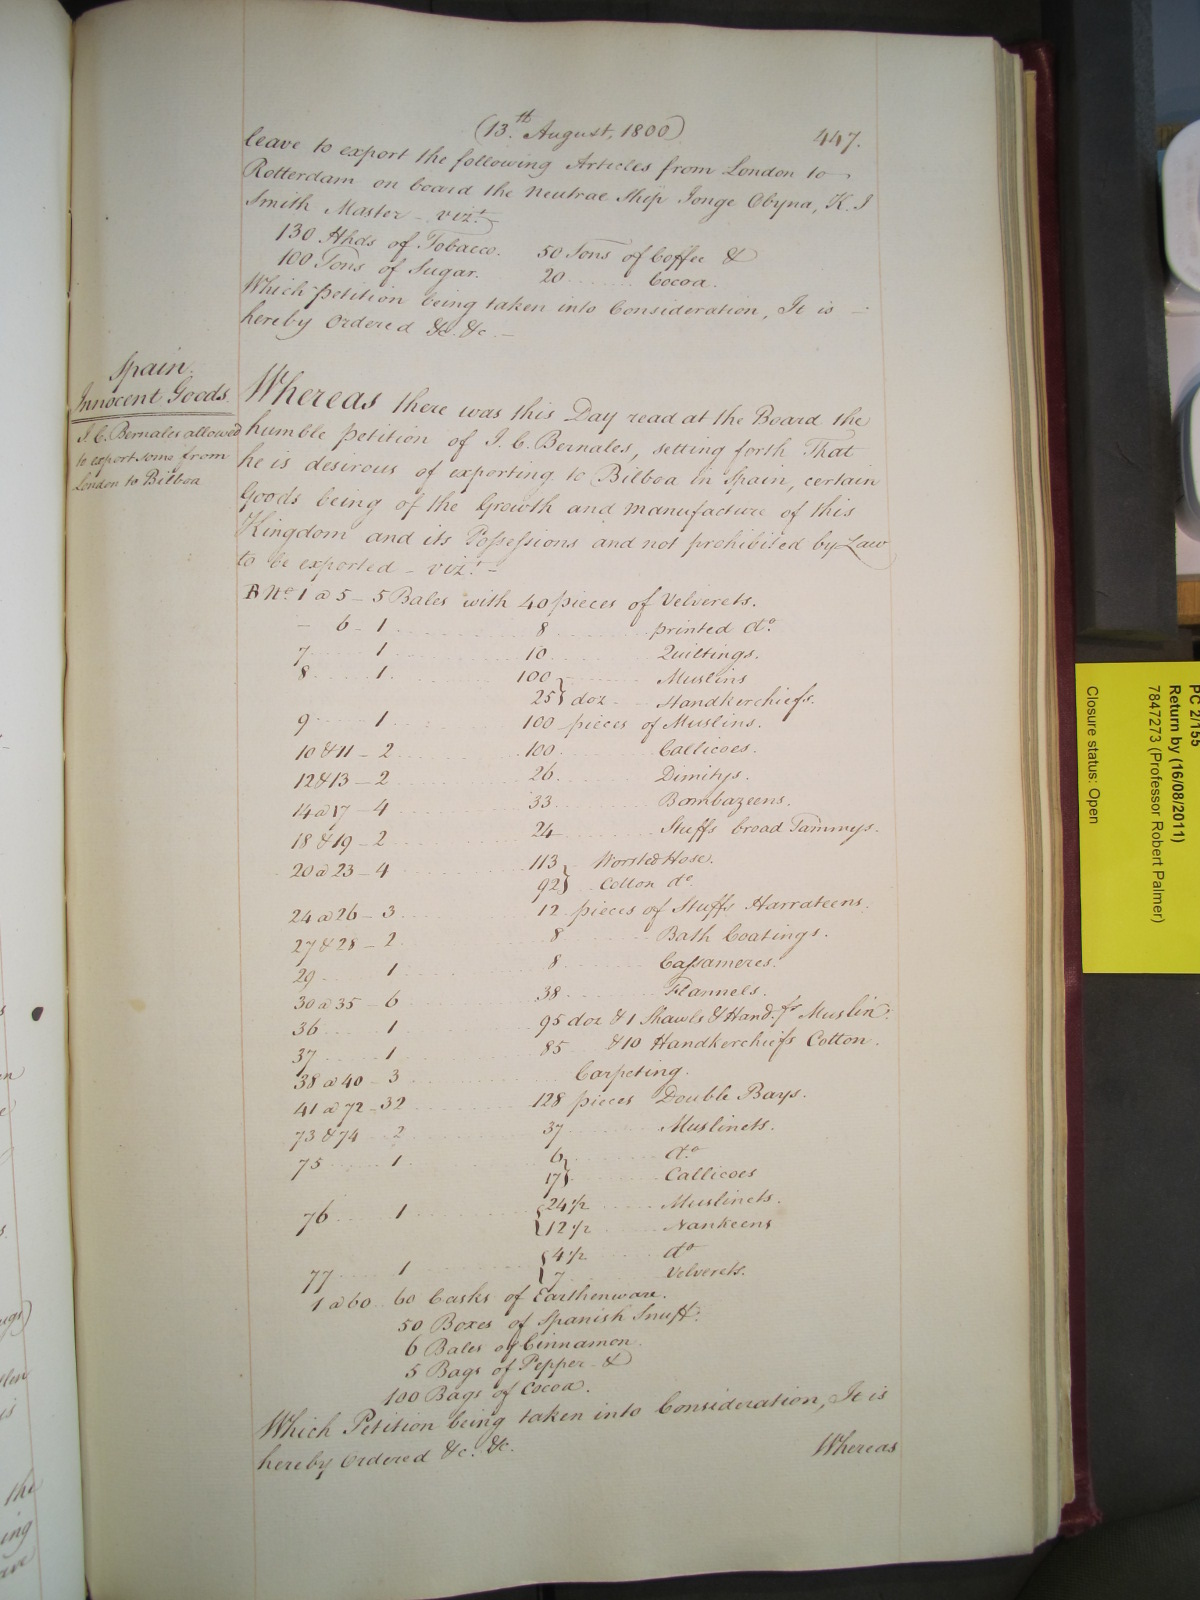 (13.th August, 1800)
447.
leave to export the following Articles from London to
Rotterdam on board the Neutral Ship Jonge Obyna, K. I
Smith Master – vizt.
130 Hhds of Tobacco. 50 Tons of Coffee &
100 Tons of Sugar. 20 ........ Cocoa.
Which Petition being taken into Consideration, It is –
hereby Ordered &c. &c. –
Spain.
Innocent Goods.
I. C. Bernales allowed
to export some from
London to Bilboa
Whereas there was this Day read at the Board the
humble Petition of I. C. Bernales, setting forth That
he is desirous of exporting to Bilboa in Spain, certain
Goods being of the Growth and Manufacture of this
Kingdom and its Possessions and not prohibited by Law
to be exported – vizt. –
B No. 1 a 5 – 5 Bales with 40 pieces of Velverets.
– 6 – 1 ........ 8 ........ printed do.
7 ..... 1 ........ 10 ........ Quiltings.
8 ..... 1 ........ 100 ........ Muslins
25 } doz. – Handkerchiefs.
9 ..... 1 ........ 100 pieces of Muslins.
10 & 11 – 2 ........ 100 ........ Callicoes.
12 & 13 – 2 ........ 26 ........ Dimitys.
14 a 17 – 4 ........ 33 ........ Bombazeens.
18 & 19 – 2 ........ 24 ........ Stuffs broad Tammys.
20 a 23 – 4 ........ 113 Worsted Hose.
92 } Cotton do.
24 a 26 – 3 ........ 12 pieces of Stuffs Harrateens.
27 & 28 – 2 ........ 8 ........ Bath Coatings.
29 ..... 1 ........ 8 ........ Cassameres.
30 a 35 – 6 ........ 38 ........ Flannels.
36 ..... 1 ........ 95 doz & 1 Shawls & Hand.fs Muslin.
37 ..... 1 ........ 85 & 10 Handkerchiefs Cotton.
38 a 40 – 3 ........ Carpeting.
41 a 72 – 32 ........ 128 pieces Double Bays.
73 & 74 2 ........ 37 ........ Muslinets.
75 ..... 1 ........ 6 ........ do.
17 } ........ Callicoes
76 ..... 1 ........ { 24 1/2 ........ Muslinets.
{ 12 1/2 ........ Nankeens
{ 4 1/2 ........ do
77 ..... 1 ........ { 7 ........ Velverets.
1 a 60 .. 60 Casks of Earthenware.
50 Boxes of Spanish Snuff.
6 Bales of Cinnamon.
5 Bags of Pepper &
100 Bags of Cocoa.
Which Petition being taken into Consideration, It is
hereby Ordered &c. &c.
Whereas
PC 2/155
Return by (16/08/2011)
7847273 (Professor Robert Palmer)
Closure status: Open